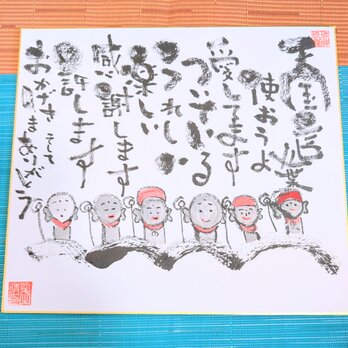 天国言葉
使おうよ
愛してます
ついている
うれしい・
楽しい
感謝します
許します
そして
おかげさまありがとう